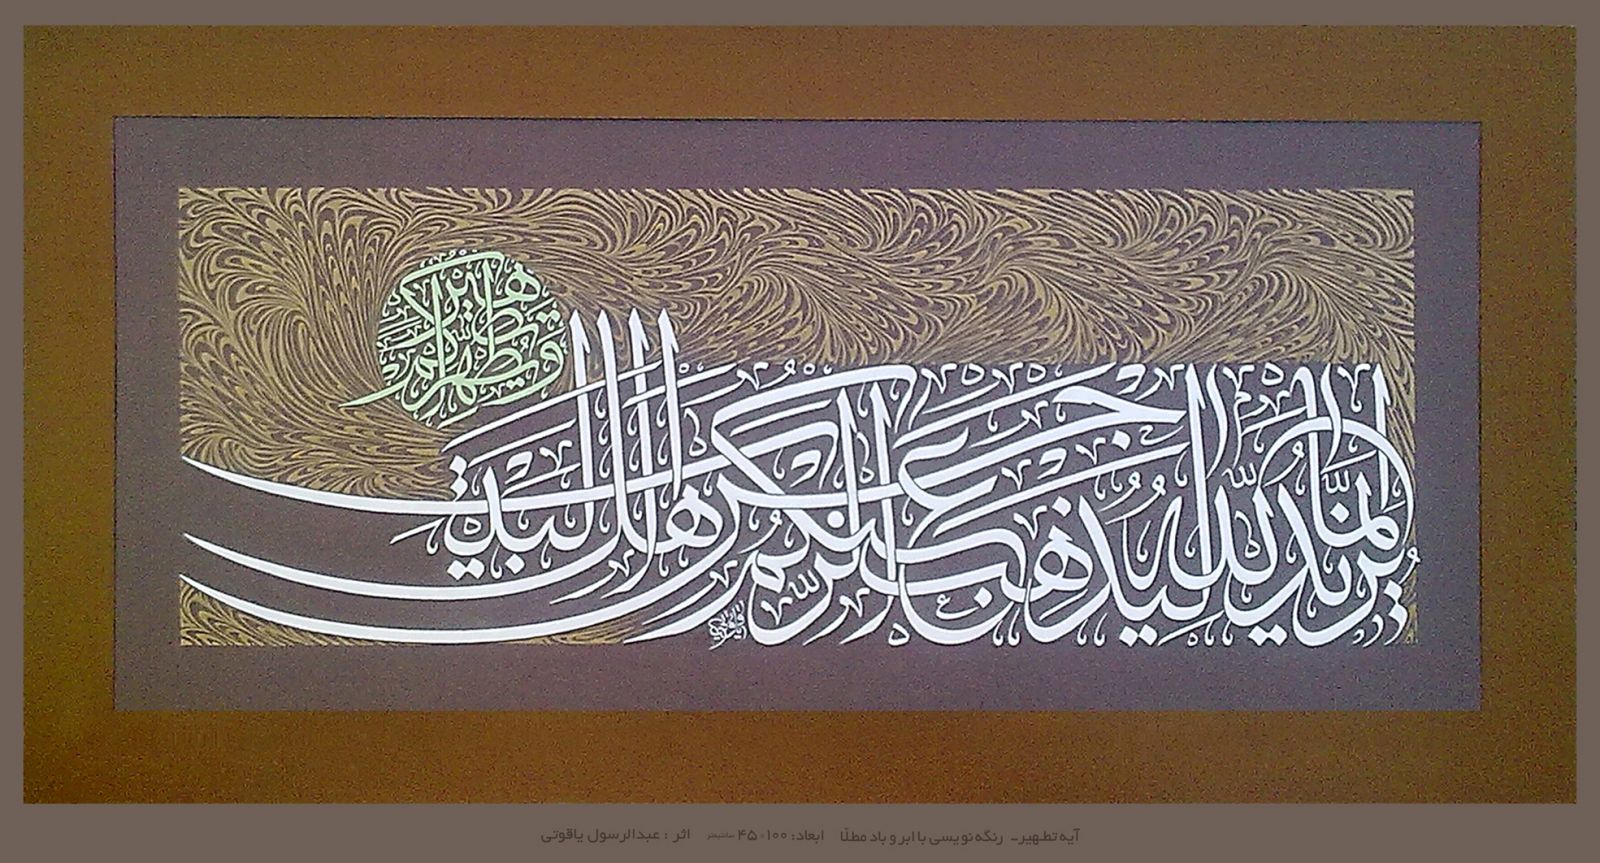 إنما يريد الله ليذهب عنكم الرجس أهل البيت
ويطهركم تطهيرا
آیه تطهیر- رنگه نویسی با ابر و باد مطلّا ابعاد: ۱۰۰×۴۵ سانتیمتر اثر : عبدالرسول یاقوتی